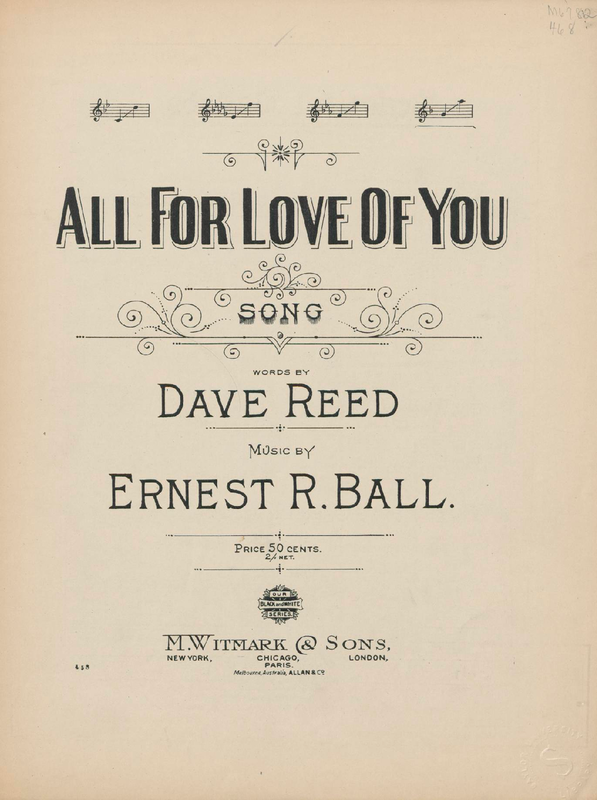 ALL FOR LOVE OF YOU
SONG
WORDS BY
DAVE REED
MUSIC BY
ERNEST R. BALL.
PRICE 50 CENTS.
2/- NET.
OUR
BLACK and WHITE
SERIES.
M. WITMARK & SONS,
NEW YORK, CHICAGO, LONDON,
PARIS.
Melbourne, Australia, ALLAN & CO.